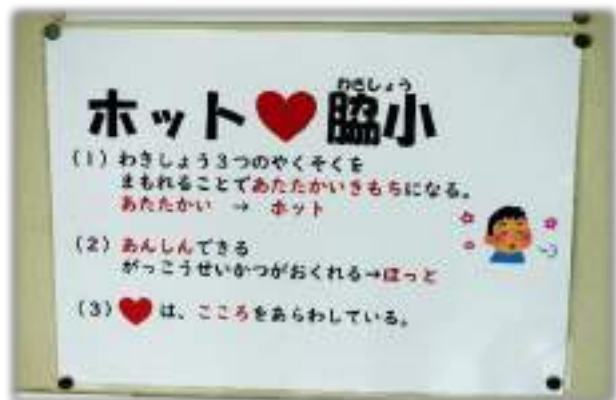 わきしょう
ホット❤脇小
(1) わきしょう3つのやくそくを
まもれることであたたかいきもちになる。
あたたかい → ホット
(2) あんしんできる
がっこうせいかつがおくれる→ほっと
(3) ❤は、こころをあらわしている。